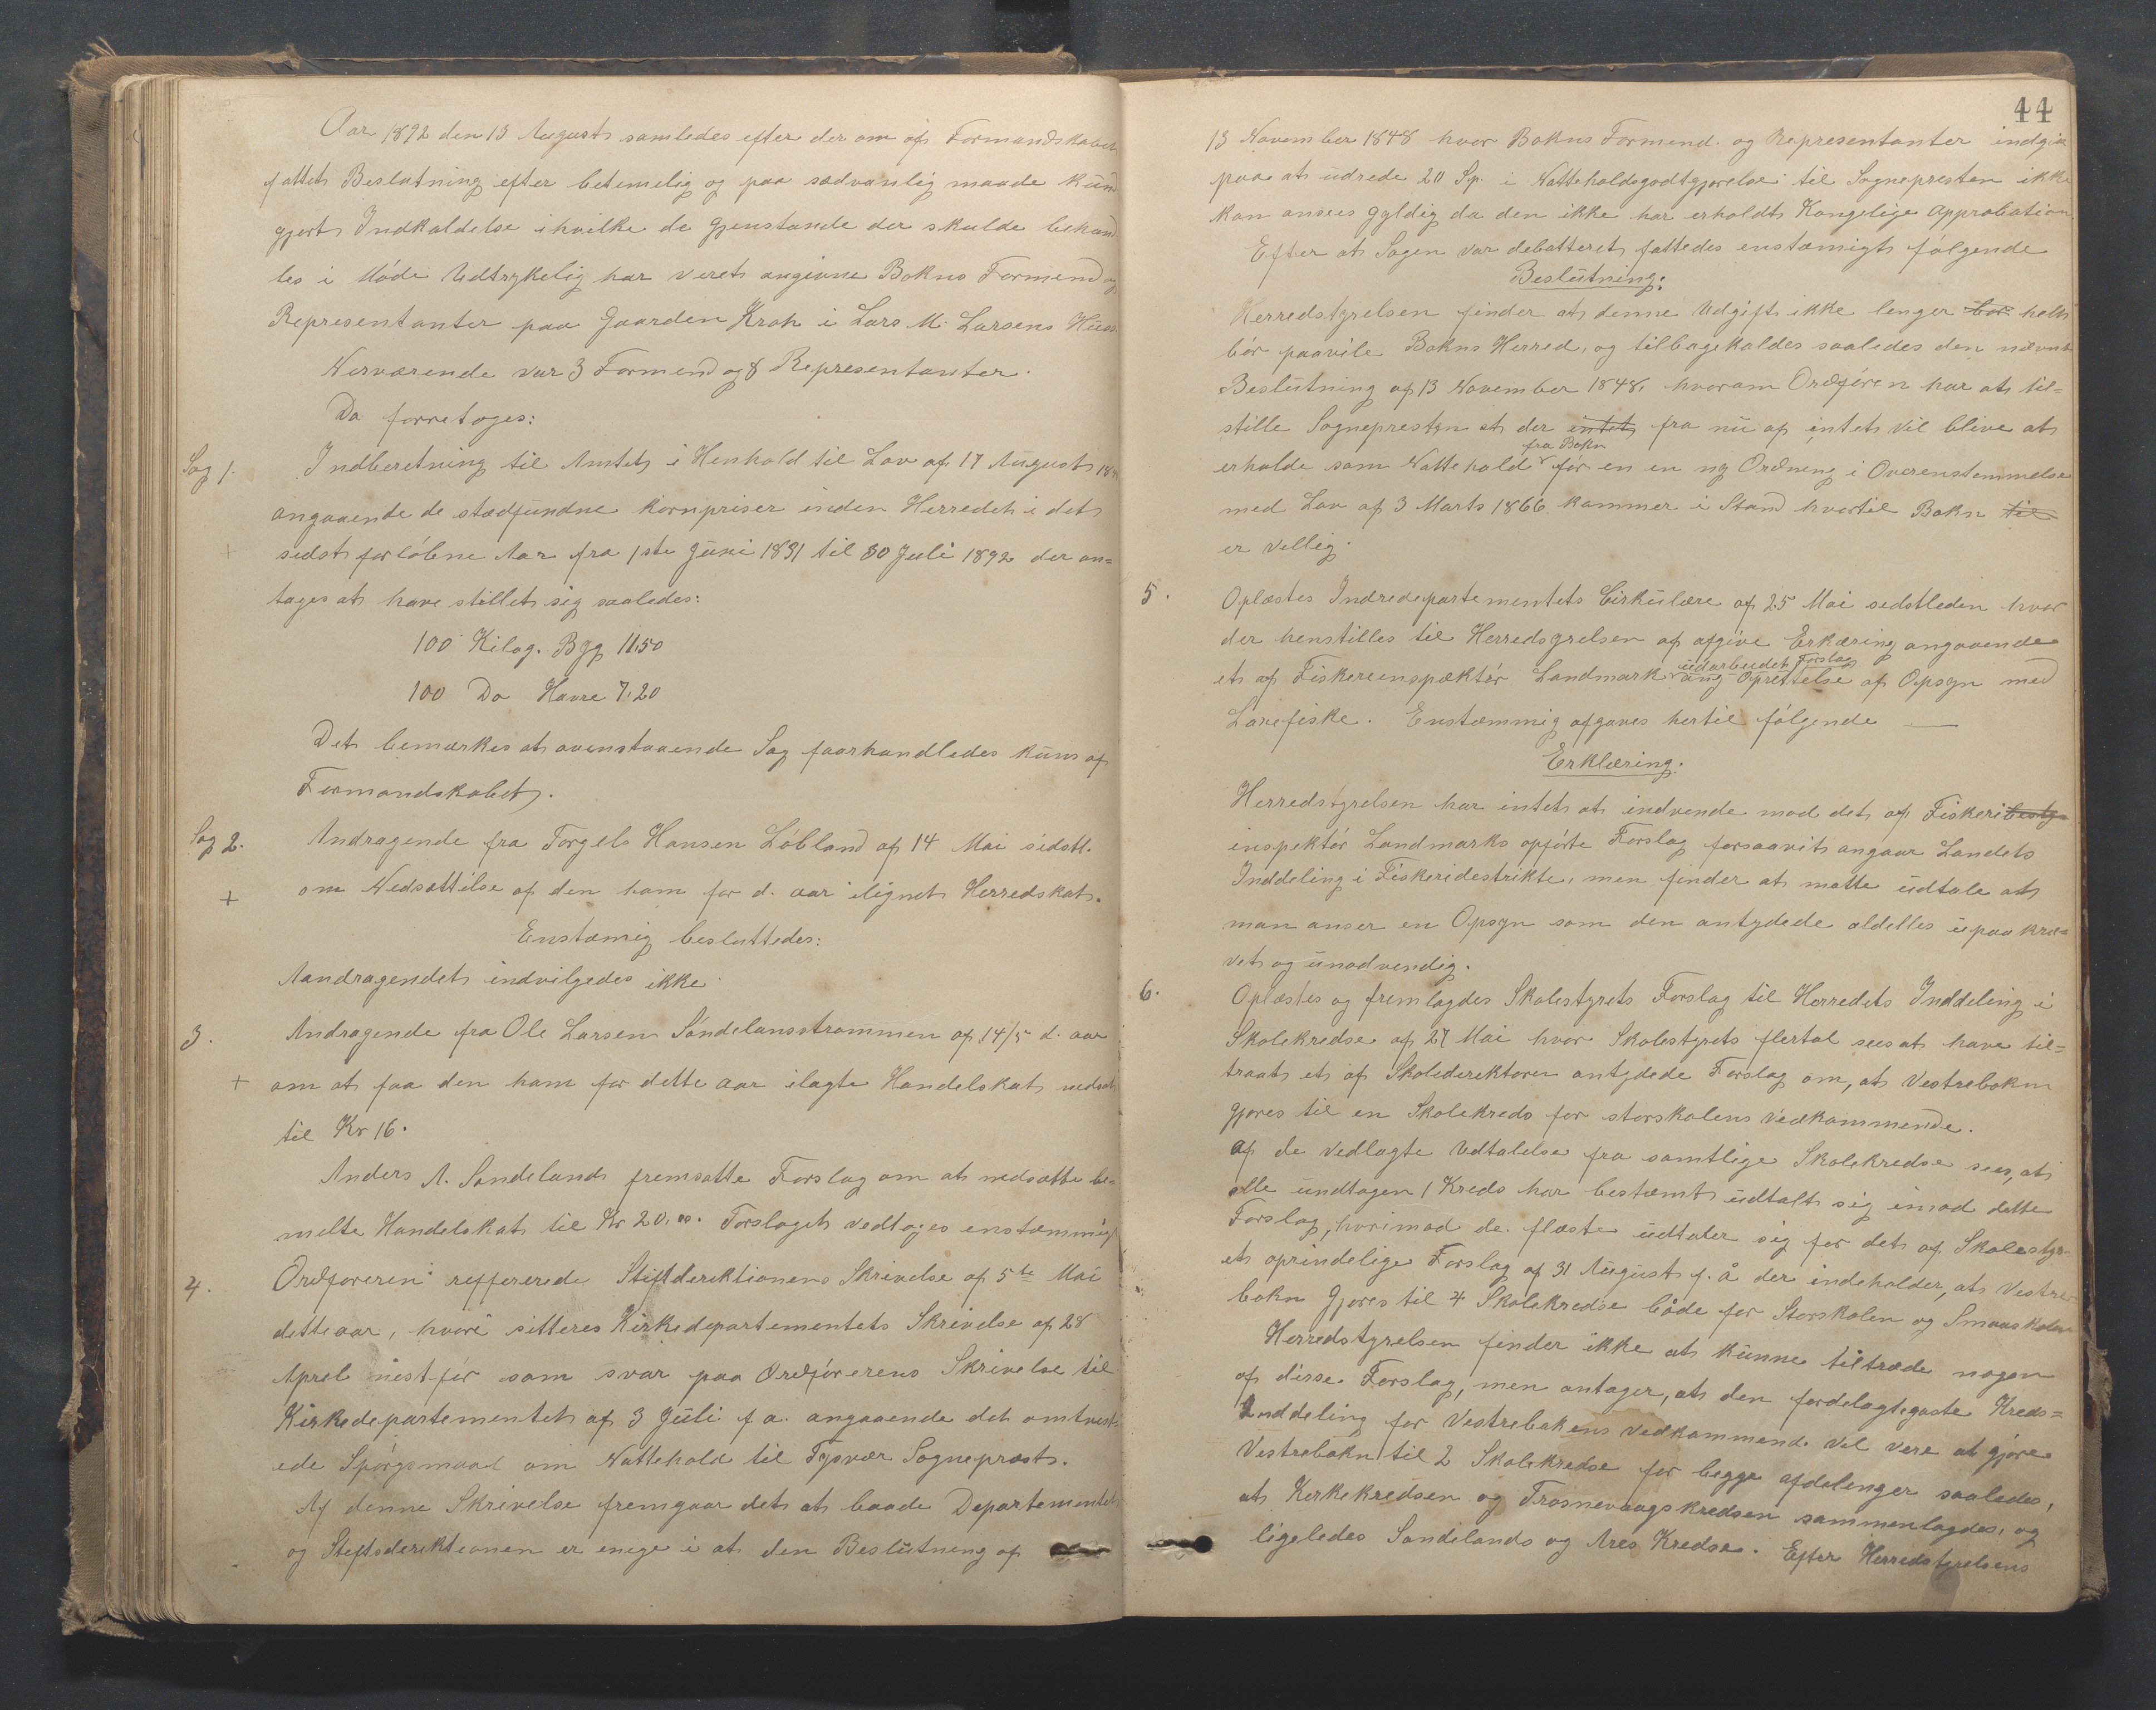 Aar 1892 den 13 August samledes efter der om af Formandskabet
fattet Beslutning efter betemelig og paa sædvanlig maade kund
gjort Indkaldelse i hvilke de Gjenstande der skulde behand
les i Möde Udtrykelig har veret angivne Bokns Formend og
Representanter paa Gaarden Kroh i Lars M. Larsens Huus
Nerværende var 3 Formend og 8 Representanter.
Da forretoges:
Sag 1. Indberetning til Amtet i Henhold til Lov af 17 August
angaaende de stædfundne kornpriser inden Herredet i det
+ sidst forløbne Aar fra 1ste Juni 1891 til 30 Juli 1892 der an=
tages at have stillet sig saaledes:
100 Kilog. Byg 11.50
100 Do Havre 7.20
Det bemærkes at ovenstaaende Sag foorhandledes kuns af
Formandskabet.
Sag 2. Andragende fra Torgels Hansen Löbland af 14 Mai sidstl.
+ om Nedsættilse af den ham for d. aar ilignet Herredskat.
Enstæmig besluttedes:
Aandragendet indvilgedes ikke
3. Andragende fra Ole Larsen Söndelansstrammen af 14/5 d. aar
+ om at faa den ham for dette aar ilagte Handelskat nedsat
til Kr 16.
Anders A. Sandeland fremsatte Forslag om at nedsætte be=
melte Handelskat til Kr 20.00. Forslaget vedtoges enstæmmigt
4. Ordføreren reffererede Stiftderektionens Skrivelse af 5te Mai
dette aar, hvori sitteres Kirkedepartementets Skrivelse af 28
Aprel nest för som svar paa Ordförerens Skrivelse til
Kirkedepartementet af 3 Juli f. a. angaaende det omtvist=
ede Spörgsmaal om Nattehold til Tysvær Sogneprest.
Af denne Skrivelse fremgaar det at baade Departementet
og Steftsderektionen er enege i at den Beslutning af
44
13 November 1848 hvor Bokns Formend. og Representanter indgik
paa at udrede 20 Sp. i Natteholdsgodtgjörelse til Sognepresten ikke
kan ansees gyldig da den ikke har erholdt Kongelige Approbation
Efter at Sagen var debatteret fattedes enstæmigt fölgende
Beslutning:
Herredstyrelsen finder at denne Udgift ikke lenger bör
bör paavile Bokns Herred, og tilbagekaldes saaledes den nævnt
Beslutning af 13 November 1848, hvorom Ordføren har at til=
stille Sognepresten at der intet fra nu af intet vil blive at
fra Bokn
erholde som Nattehold för en en ny Ordning i Overenstemmelse
med Lov af 3 Marts 1866 kommer i Stand hvortil Bokn til
er vellig.
5. Oplæstes Indredepartementets Cirkulære af 25 Mai sidstleden hvor
der henstilles til Herredsyrelsen af afgive Erkæring angaaende
udarbeidet Forslag
et af Fiskereenspæktör Landmark ang Oprettelse af Opsyn med
Laxefiske. Enstæmmig afgaves hertil fölgende
Erklæring.
Herredstyrelsen har intet at indvende mod det af Fiskeri
inspektör Landmarks opförte Forslag forsaavit angaar Landets
Inddeling i Fiskeridestrikte, men finder at matte udtale at
man anser en Opsyn som den antydede aldelles upaakræ=
vet og unødvendig.
6. Oplæstes og fremlagdes Skolestyrets Forslag til Herredets Inddeling i
Skolekredse af 27 Mai hvor Skolestyrets flertal sees at have til=
traat et af Skolederektoren antydede Forslag om, at Vestrebokn
gjøres til en Skolekreds for storskolens Vedkommende.
Af de Vedlagte Udtalelse fra samtlige Skolekredse sees, at
alle undtagen 1 Kreds har bestæmt udtalt sig imod dette
Forslag, hvorimod de flæste udtaler sig for det af Skolestyr=
et oprindelige Forslag af 31 August f. å der indeholder, at Vestre=
bokn Gjøres til 4 Skolekredse både for Storskolen og Smaaskolen
Herredstyrelsen finder ikke at kunne tiltræde nogen
af disse Forslag, men antager, at den fordelagtegaste Kreds=
Inddeling for Vestrebokens Vedkommende vil vere at gjøre
Vestrebokn til 2 Skolekredse for begge afdelenger saaledes,
at Kerkekredsen og Trosnevaagskredsen sammenlagdes, og
ligeledes Sandelands og Ares Kredse. Efter Herredstyrelsens